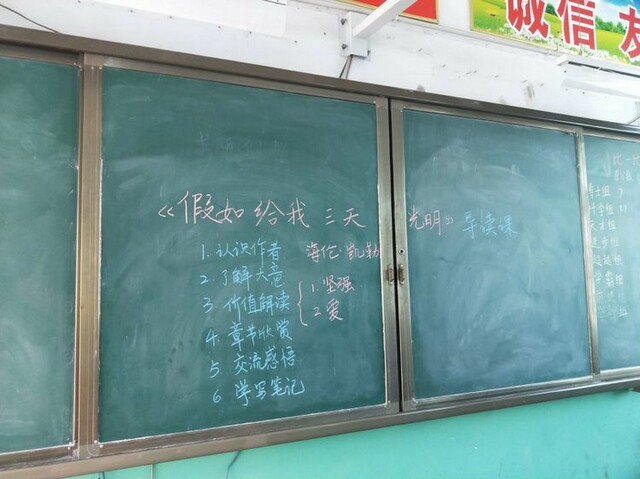 诚信友
《假如给我三天光明》导读课
1. 认识作者 海伦·凯勒
2. 了解大意
3. 价值解读 { 1. 坚强
2. 爱
4. 章节欣赏
5. 交流感悟
6. 学写笔记
比一